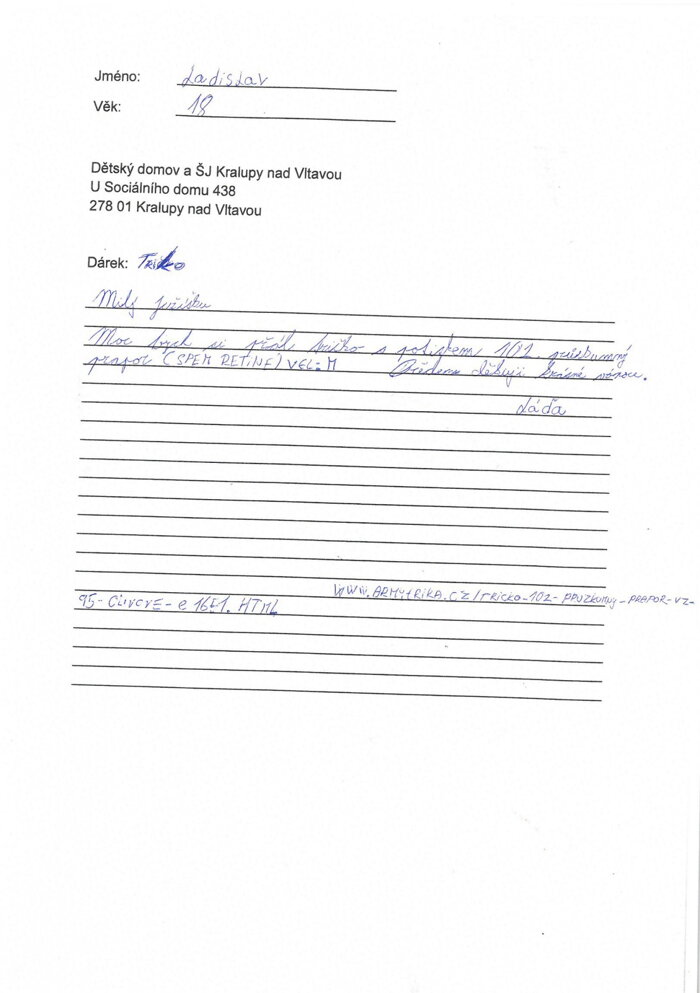 Jméno: Ladislav
Věk: 18
Dětský domov a ŠJ Kralupy nad Vltavou
U Sociálního domu 438
278 01 Kralupy nad Vltavou
Dárek: Tričko
Milý ježíšku
Moc bych si přál tričko s potiskem 102. průzkumný
prapor (SPEM RETINE) VEL: M Předem děkuji krásné vánoce.
Láďa
WWW.ARMYTRIKA.CZ/TRICKO-102-PRUZKUMNY-PRAPOR-VZ-
95-